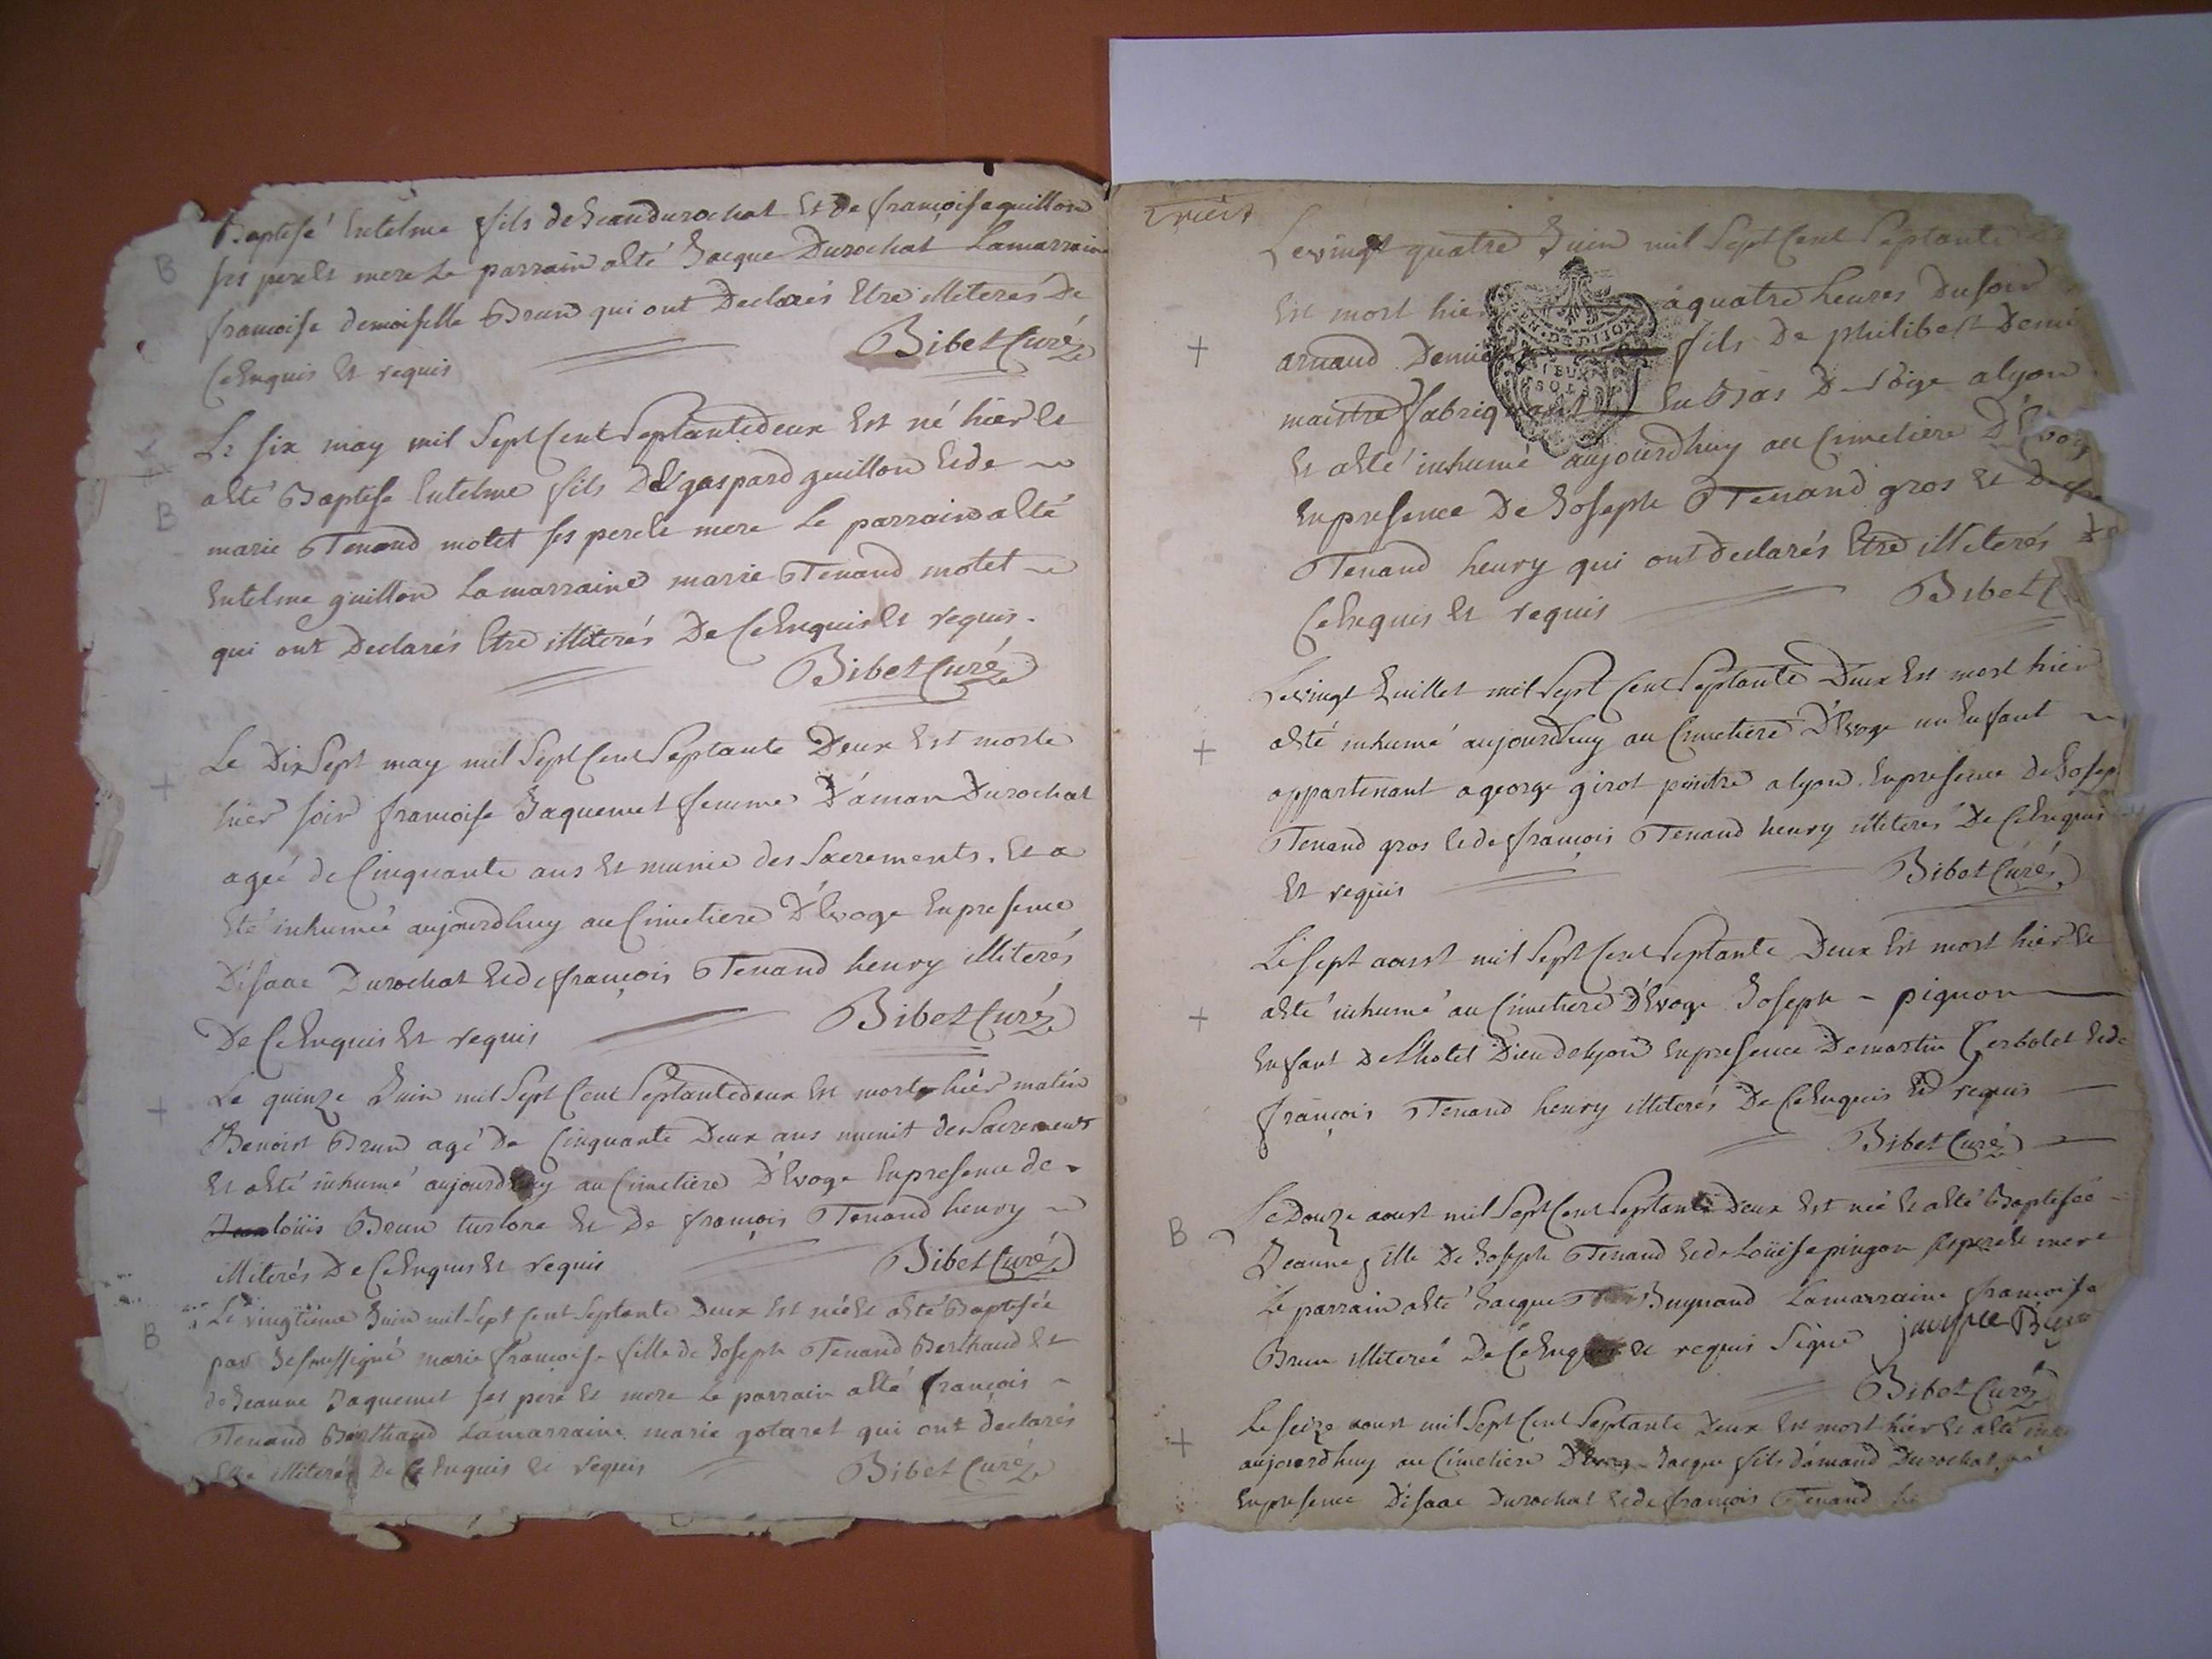 B
Baptisé Entelme fils de Jean durochat Et De françoise guillon
ses perels mere Le parrain aété Jacque Durochat Lamarraine
francoise demoiselle Brun qui ont Declarés Etre illiterés De
Ce Enquis Et requis
Bibet Curé
Le six may mil Sept Cent Septantedeux Est né hier Et
B
aété Baptise Entelme fils De gaspard guillon Et de
marie Tenand motet ses perele mere Le parrain aété
Entelme guillon Lamarraine marie Tenand motet
qui ont Declarés Etre illiterés De Ce Enquis Et requis.
Bibet Curé
Le Dix Sept may mil Sept Cent Septante Deux Est morte
+
hier soir francoise Jaquemet femme D'aman Durochat
agée de Cinquante ans Et munie des Sacrements. Et a
Eté inhumée aujourdhuy au Cimetiere D'Evoge Enpresence
D'isaac Durochat Et de françois Tenand henry illiterés
De Ce Enquis Et requis
Bibet Curé
+
Le quinze Juin mil Sept Cent Septantedeux Est mort hier matin
Benoist Brun agé De Cinquante Deux ans munit des Sacrements
Et aété inhumé aujourdhuy au Cimetiere D'Evoge Enpresence de
loüis Brun turlore Et De françois Tenand henry
illiterés De Ce Enquis Et requis
Bibet Curé
Le vingtieme Juin mil Sept Cent Septante Deux Est née Et aété Baptisée
B
par Je soussigné marie francoise fille de Joseph Tenand Berthaud Et
de Jeanne Jaquemet ses pere Et mere Le parrain aété françois
Tenand Berthaud Lamarraine marie gotaret qui ont declarés
Etre illiterés De Ce Enquis Et requis
Bibet Curé
Le vingt quatre Juin mil Sept Cent Septante
Est mort hier à quatre heures Du soir
EN. DE DIJON
+
arnaud fils De philibert
SOLS
maistre fabriquant En Bas De Soige a lyon
Et aété inhumé aujourdhuy au Cimetiere D'Evoge
Enpresence De Joseph Tenand gros Et
Tenand henry qui ont declarés Etre illiterés De
Ce Enquis Et requis
Bibet C
Le vingt Juillet mil Sept Cent Septante Deux Est mort hier
+
aété inhumé aujourdhuy au Cimetiere D'Evoge un Enfant
appartenant a george girot peintre a lyon. Enpresence de Josep
Tenand gros Et de françois Tenand henry illiterés De Ce Enquis
Et requis
Bibet Curé
Le Sept aoust mil Sept Cent Septante Deux Est mort hier Et
+
aété inhumé au Cimetiere D'Evoge Joseph pignon
Enfant De L'hotel Dieu de lyon Enpresence De martin Et de
françois Tenand henry illiterés De Ce Enquis Et requis
Bibet Curé
Le Douze aoust mil Sept Cent Septante Deux Est née Et aété Baptisée
B
Jeanne fille De Joseph Tenand Et de Loüise pingon ses perele mere
Le parrain aété Jacque Buynand Lamarraine francoise
Brun illiterée De Ce Enquis Et requis Signé
Bibet Curé
Le seize aoust mil Sept Cent Septante Deux Est mort hier Et aété
+
aujourdhuy au Cimetiere D'Evoge Jacque fils d'amand Durochat
Enpresence D'isaac Durochat Et de françois Tenand